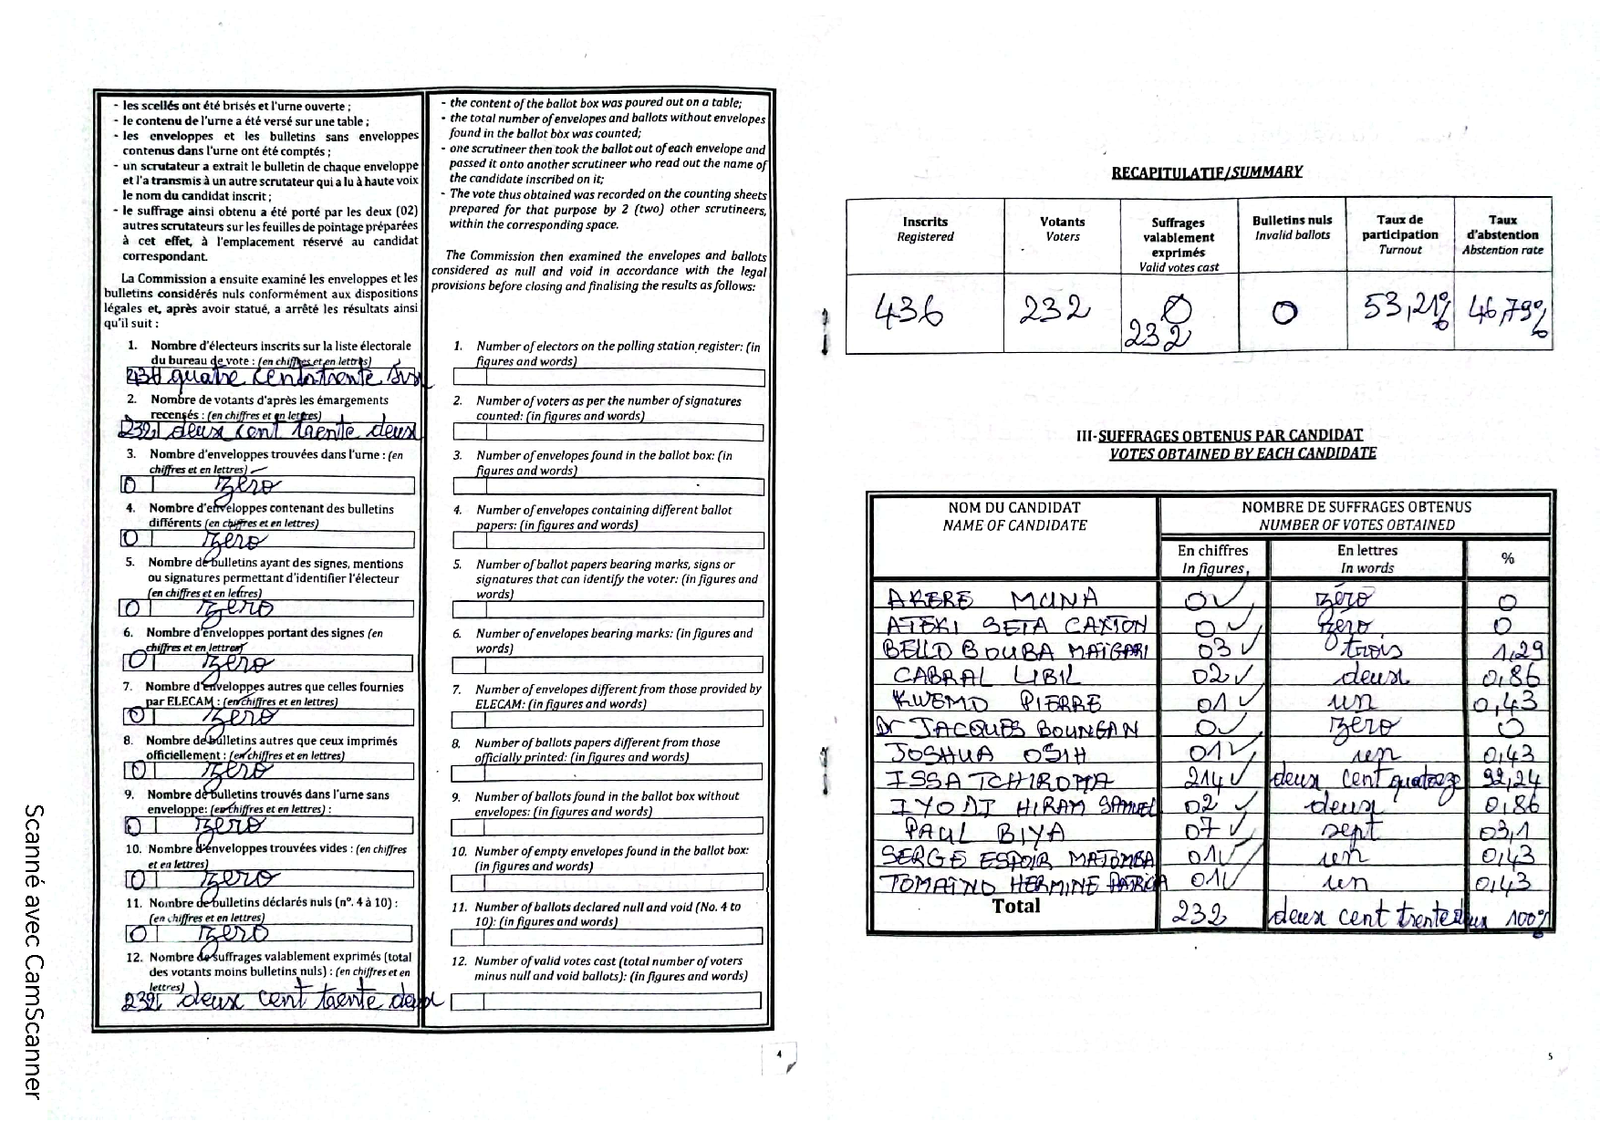 - les scellés ont été brisés et l'urne ouverte ;
- le contenu de l'urne a été versé sur une table ;
- les enveloppes et les bulletins sans enveloppes
contenus dans l'urne ont été comptés ;
- un scrutateur a extrait le bulletin de chaque enveloppe
et l'a transmis à un autre scrutateur qui a lu à haute voix
le nom du candidat inscrit ;
- le suffrage ainsi obtenu a été porté par les deux (02)
autres scrutateurs sur les feuilles de pointage préparées
à cet effet, à l'emplacement réservé au candidat
correspondant.
La Commission a ensuite examiné les enveloppes et les
bulletins considérés nuls conformément aux dispositions
légales et, après avoir statué, a arrêté les résultats ainsi
qu'il suit :
1. Nombre d'électeurs inscrits sur la liste électorale
du bureau de vote : (en chiffres et en lettres)
436 quatre cent trente six
2. Nombre de votants d'après les émargements
recensés : (en chiffres et en lettres)
232 deux cent trente deux
3. Nombre d'enveloppes trouvées dans l'urne : (en
chiffres et en lettres)
0 zéro
4. Nombre d'enveloppes contenant des bulletins
différents (en chiffres et en lettres)
0 zéro
5. Nombre de bulletins ayant des signes, mentions
ou signatures permettant d'identifier l'électeur
(en chiffres et en lettres)
0 zéro
6. Nombre d'enveloppes portant des signes (en
chiffres et en lettres)
0 zéro
7. Nombre d'enveloppes autres que celles fournies
par ELECAM : (en chiffres et en lettres)
0 zéro
8. Nombre de bulletins autres que ceux imprimés
officiellement : (en chiffres et en lettres)
0 zéro
9. Nombre de bulletins trouvés dans l'urne sans
enveloppe: (en chiffres et en lettres) :
0 zéro
10. Nombre d'enveloppes trouvées vides : (en chiffres
et en lettres)
0 zéro
11. Nombre de bulletins déclarés nuls (n°. 4 à 10) :
(en chiffres et en lettres)
0 zéro
12. Nombre de suffrages valablement exprimés (total
des votants moins bulletins nuls) : (en chiffres et en
lettres)
232 deux cent trente deux
- the content of the ballot box was poured out on a table;
- the total number of envelopes and ballots without envelopes
found in the ballot box was counted;
- one scrutineer then took the ballot out of each envelope and
passed it onto another scrutineer who read out the name of
the candidate inscribed on it;
- The vote thus obtained was recorded on the counting sheets
prepared for that purpose by 2 (two) other scrutineers,
within the corresponding space.
The Commission then examined the envelopes and ballots
considered as null and void in accordance with the legal
provisions before closing and finalising the results as follows:
1. Number of electors on the polling station register: (in
figures and words)
2. Number of voters as per the number of signatures
counted: (in figures and words)
3. Number of envelopes found in the ballot box: (in
figures and words)
4. Number of envelopes containing different ballot
papers: (in figures and words)
5. Number of ballot papers bearing marks, signs or
signatures that can identify the voter: (in figures and
words)
6. Number of envelopes bearing marks: (in figures and
words)
7. Number of envelopes different from those provided by
ELECAM: (in figures and words)
8. Number of ballots papers different from those
officially printed: (in figures and words)
9. Number of ballots found in the ballot box without
envelopes: (in figures and words)
10. Number of empty envelopes found in the ballot box:
(in figures and words)
11. Number of ballots declared null and void (No. 4 to
10): (in figures and words)
12. Number of valid votes cast (total number of voters
minus null and void ballots): (in figures and words)
4
RECAPITULATIF/SUMMARY
Inscrits Registered
Votants Voters
Suffrages valablement exprimés Valid votes cast
Bulletins nuls Invalid ballots
Taux de participation Turnout
Taux d'abstention Abstention rate
436 232 0 232 0 53,21% 46,79%
III-SUFFRAGES OBTENUS PAR CANDIDAT
VOTES OBTAINED BY EACH CANDIDATE
NOM DU CANDIDAT NOMBRE DE SUFFRAGES OBTENUS
NAME OF CANDIDATE NUMBER OF VOTES OBTAINED
En chiffres En lettres %
In figures In words
AKERE MUNA 0 zéro 0
ATEKI SETA CAXTON 0 zéro 0
BELLO BOUBA MAIGARI 03 trois 1,29
CABRAL LIBIL 02 deux 0,86
KWEMO PIERRE 01 un 0,43
Dr JACQUES BOUNGAN 0 zéro 0
JOSHUA OSIH 01 un 0,43
ISSA TCHIROMA 214 deux cent quatorze 92,24
IYODI HIRAM SAMUEL 02 deux 0,86
PAUL BIYA 07 sept 03,1
SERGE ESPOIR MATOMBA 01 un 0,43
TOMAINO HERMINE PATRICIA 01 un 0,43
Total 232 deux cent trente deux 100%
5
Scanné avec CamScanner